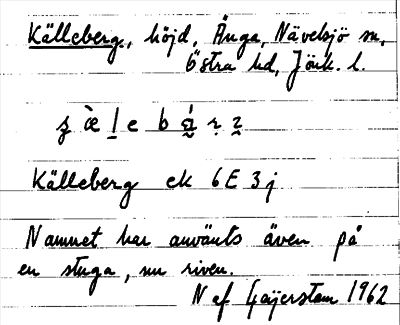 Källeberg, höjd, Änga, Nävelsjö sn,
Östra hd, Jönk. l.
Källeberg ek 6E 3j
Namnet har använts även på
en stuga, nu riven.
N af Geijerstam 1962